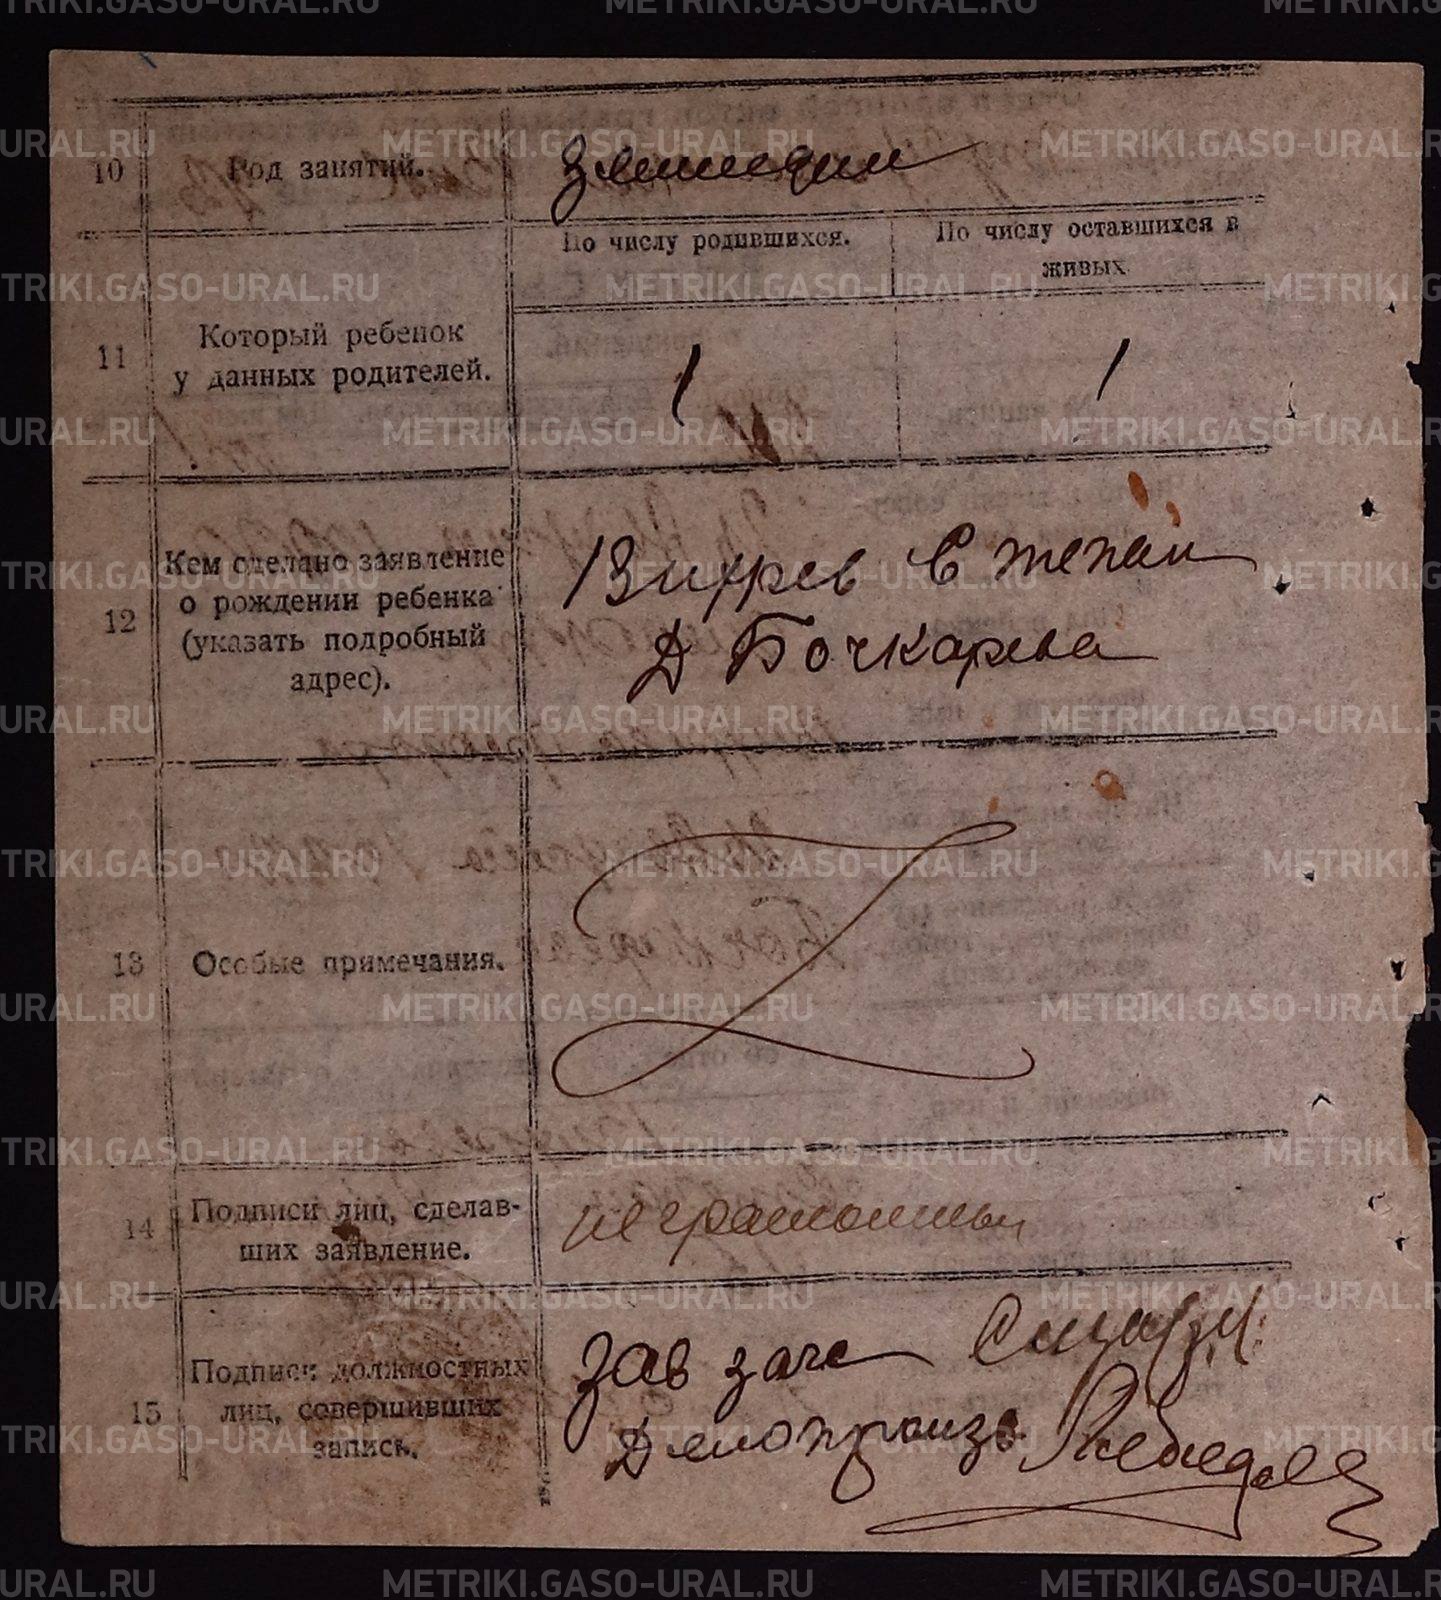 METRIKI.GASO-URAL.RU
10
Род занятий.
Земледел
По числу родившихся.
По числу оставшихся в
живых.
11
Который ребенок
у данных родителей.
1
1
12
Кем сделано заявление
о рождении ребенка
(указать подробный
адрес).
Степан
Д Бочкарева
13
Особые примечания.
14
Подписи лиц, сделав-
ших заявление.
неграмотный
15
Подписи должностных
лиц, совершивших
запись.
Зав загс
Делопроизв Лебедев